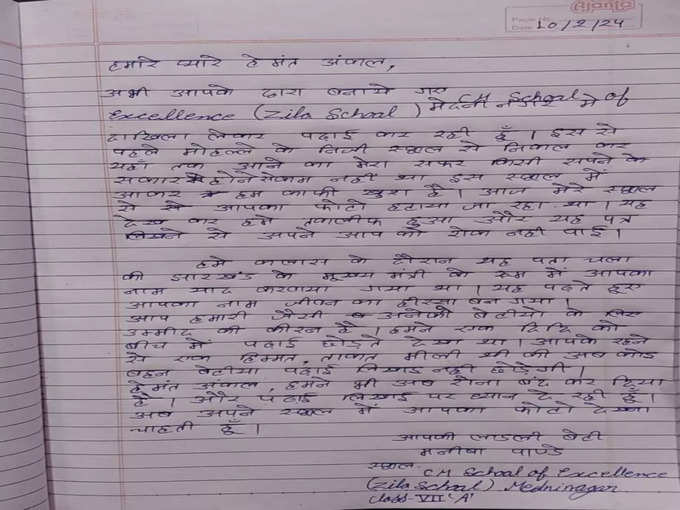 Ajanta
Page No.
Date 10/2/24
हमारे प्यारे हेमंत अंकल,
अभी आपके द्वारा बनाये गए CM School of
Excellence (Zila School) मेदनीनगर में
दाखिला लेकर पढाई कर रही हूँ । इस से
पहले मोहल्ले के निजी स्कूल से निकाल कर
यहाँ तक आने का मेरा सफर किसी सपने के
सकार होने से कम नहीं था इस स्कूल में
आकर हम काफी खुश है । आज मेरे स्कूल
से आपका फोटो हटाया जा रहा था । यह
देख कर हमे तकलीफ हुआ और यह पत्र
लिखने से अपने आप को रोक नही पाई ।
हमे क्लास के दौरान यह पता चला
की झारखंड के मुख्य मंत्री के रूम में आपका
नाम याद करवाया गया था । यह पढते हुए
आपका नाम जीवन का हीस्सा बन गया ।
आप हमारी जैसी अनेको बेटीयो के लिए
उम्मीद की कीरन है । हमने एक दिदि को
बीच में पढाई छोड़ते देखा था । आपके रहने
से एक हिम्मत, ताकत मीली थी की अब कोई
बहन बेटीया पढाई लिखाई नही छोड़ेगी ।
हेमंत अंकल, हमने भी अब रोना बंद कर दिया
है । और पढाई लिखाई पर ध्यान दे रही हूँ ।
अब अपने स्कूल में आपका फोटो देखना
चाहती हूँ ।
आपकी लाडली बेटी
मनीषा पाण्डे
स्कूल- CM School of Excellence
(Zila School) Medninagar
Class-VII 'A'